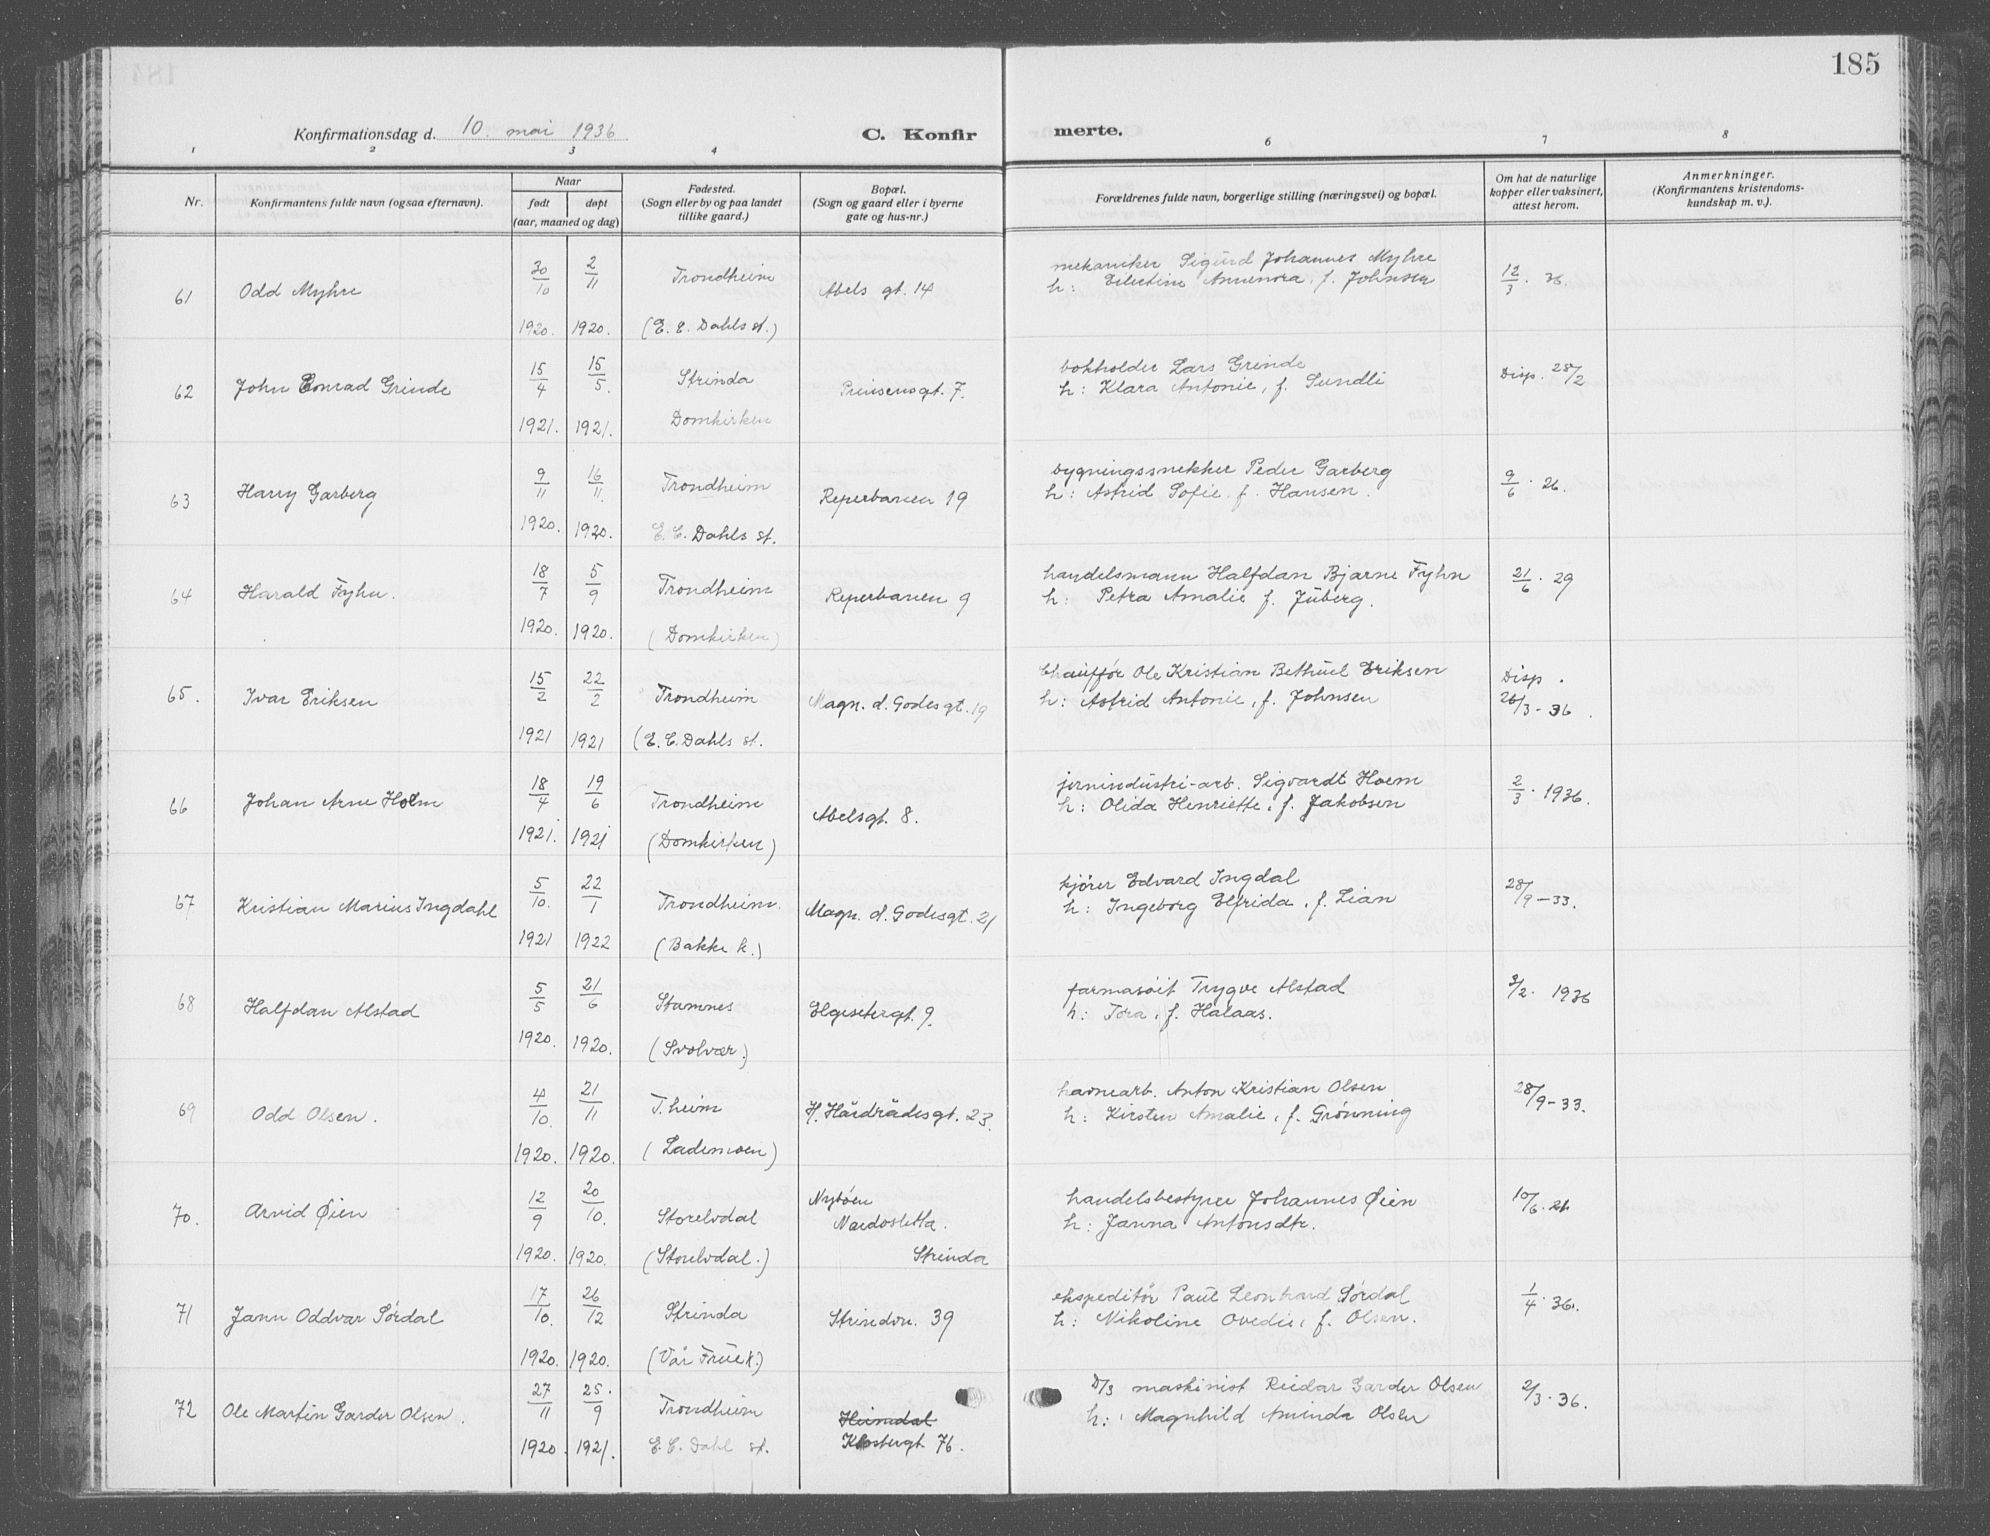 185
Konfirmationsdag d. 10. mai 1936 C. Konfirmerte.
1 2 3 4 6 7 8
Nr. Konfirmantens fulde navn (ogsaa efternavn). Naar født døpt (aar, maaned og dag) Fødested. (Sogn eller by og paa landet tillike gaard.) Bopæl. (Sogn og gaard eller i byerne gate og hus-nr.) Forældrenes fulde navn, borgerlige stilling (næringsvei) og bopæl. Om hat de naturlige kopper eller vaksinert, attest herom. Anmerkninger. (Konfirmantens kristendomskundskap m. v.).
61 Odd Myhre 30/10 1920. 2/11 1920. Trondheim (E. C. Dahls st.) Abels gt. 14 mekaniker Sigurd Johannes Myhre
h: Annenora, f. Johnsen 12/3. 36.
62 John Conrad Grinde 15/4 1921. 15/5. 1921. Strinda Domkirken Prinsensgt. 7. bokholder Lars Grinde
h: Klara Antonie, f. Sundli Disp. 28/2
63 Harry Garberg 9/11 1920. 16/11. 1920. Trondheim E. C. Dahls st. Reperbanen 19 bygningssnekker Peder Garberg
h: Astrid Sofie, f. Hansen. 9/6. 26.
64 Harald Fyhn. 18/7 1920. 5/9 1920. Trondheim (Domkirken) Reperbanen 9 handelsmann Halfdan Bjarne Fyhn
h: Petra Amalie f. Juberg. 21/6. 29
65. Ivar Eriksen 15/2 1921 22/2 1921 Trondheim (E. C. Dahls st. Magn. d. Godesgt. 19 Chauffør Ole Kristian Bethuel Eriksen
h: Astrid Antonie, f. Johnsen Disp. 26/3-36.
66 Johan Arne Holm 18/4 1921. 19/6 1921 Trondheim (Domkirken) Abelsgt. 8. jernindustri-arb. Sigvardt Hoem
h: Olida Henriette, f. Jakobsen 2/3. 1936.
67 Kristian Marius Ingdahl 5/10. 1921 22/1 1922 Trondheim. (Bakke k.) Magn. d. Godesgt. 21 kjører Edvard Ingdal
h: Ingeborg Elfrida, f. Lian 28/9-33.
68 Halfdan Alstad 5/5 1920. 21/6 1920. Stamnes (Svolvær.) Elgesetergt. 9. farmasøit Trygve Alstad
h: Tora, f. Halaas. 3/2. 1936
69 Odd Olsen. 4/10. 1920. 21/11 1920. T.heim (Lademoen) H. Hårdrådesgt. 23. havnearb. Anton Kristian Olsen
h: Kirsten Amalie, f. Grønning 28/9-33.
70. Arvid Øien 12/9 1920. 20/10. 1920. Storelvdal (Storelvdal.) Nardosletta. Strinda handelsbestyrer Johannes Øien
h: Janna Antonsdtr. 10/6. 21.
71 Jann Oddvar Sørdal 17/10. 1920. 26/12 1920. Strinda (Vår Frue k.) Strindvn. 39 ekspeditør Paul Leonhard Sørdal
h: Nikoline Ovedie, f. Olsen. 1/4. 36.
72 Ole Martin Garder Olsen. 27/11 1920. 25./9 1921. Trondheim E. C. Dahl st. Heimdal Klostergt. 76. D/S maskinist Reidar Garder Olsen
h: Magnhild Aminda Olsen 2/3. 36.